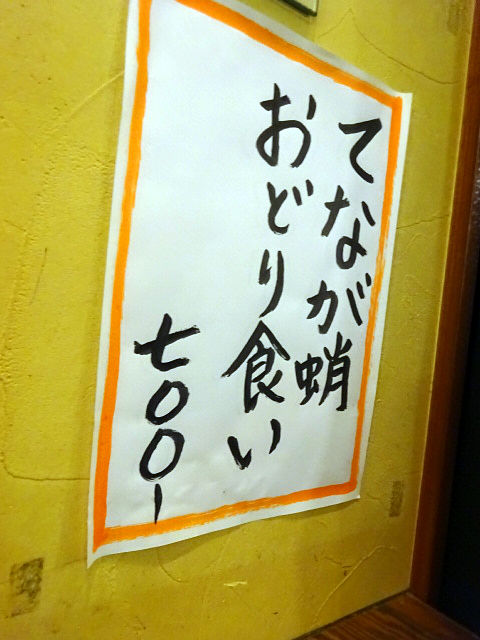 てなが蛸
おどり食い
七〇〇ー